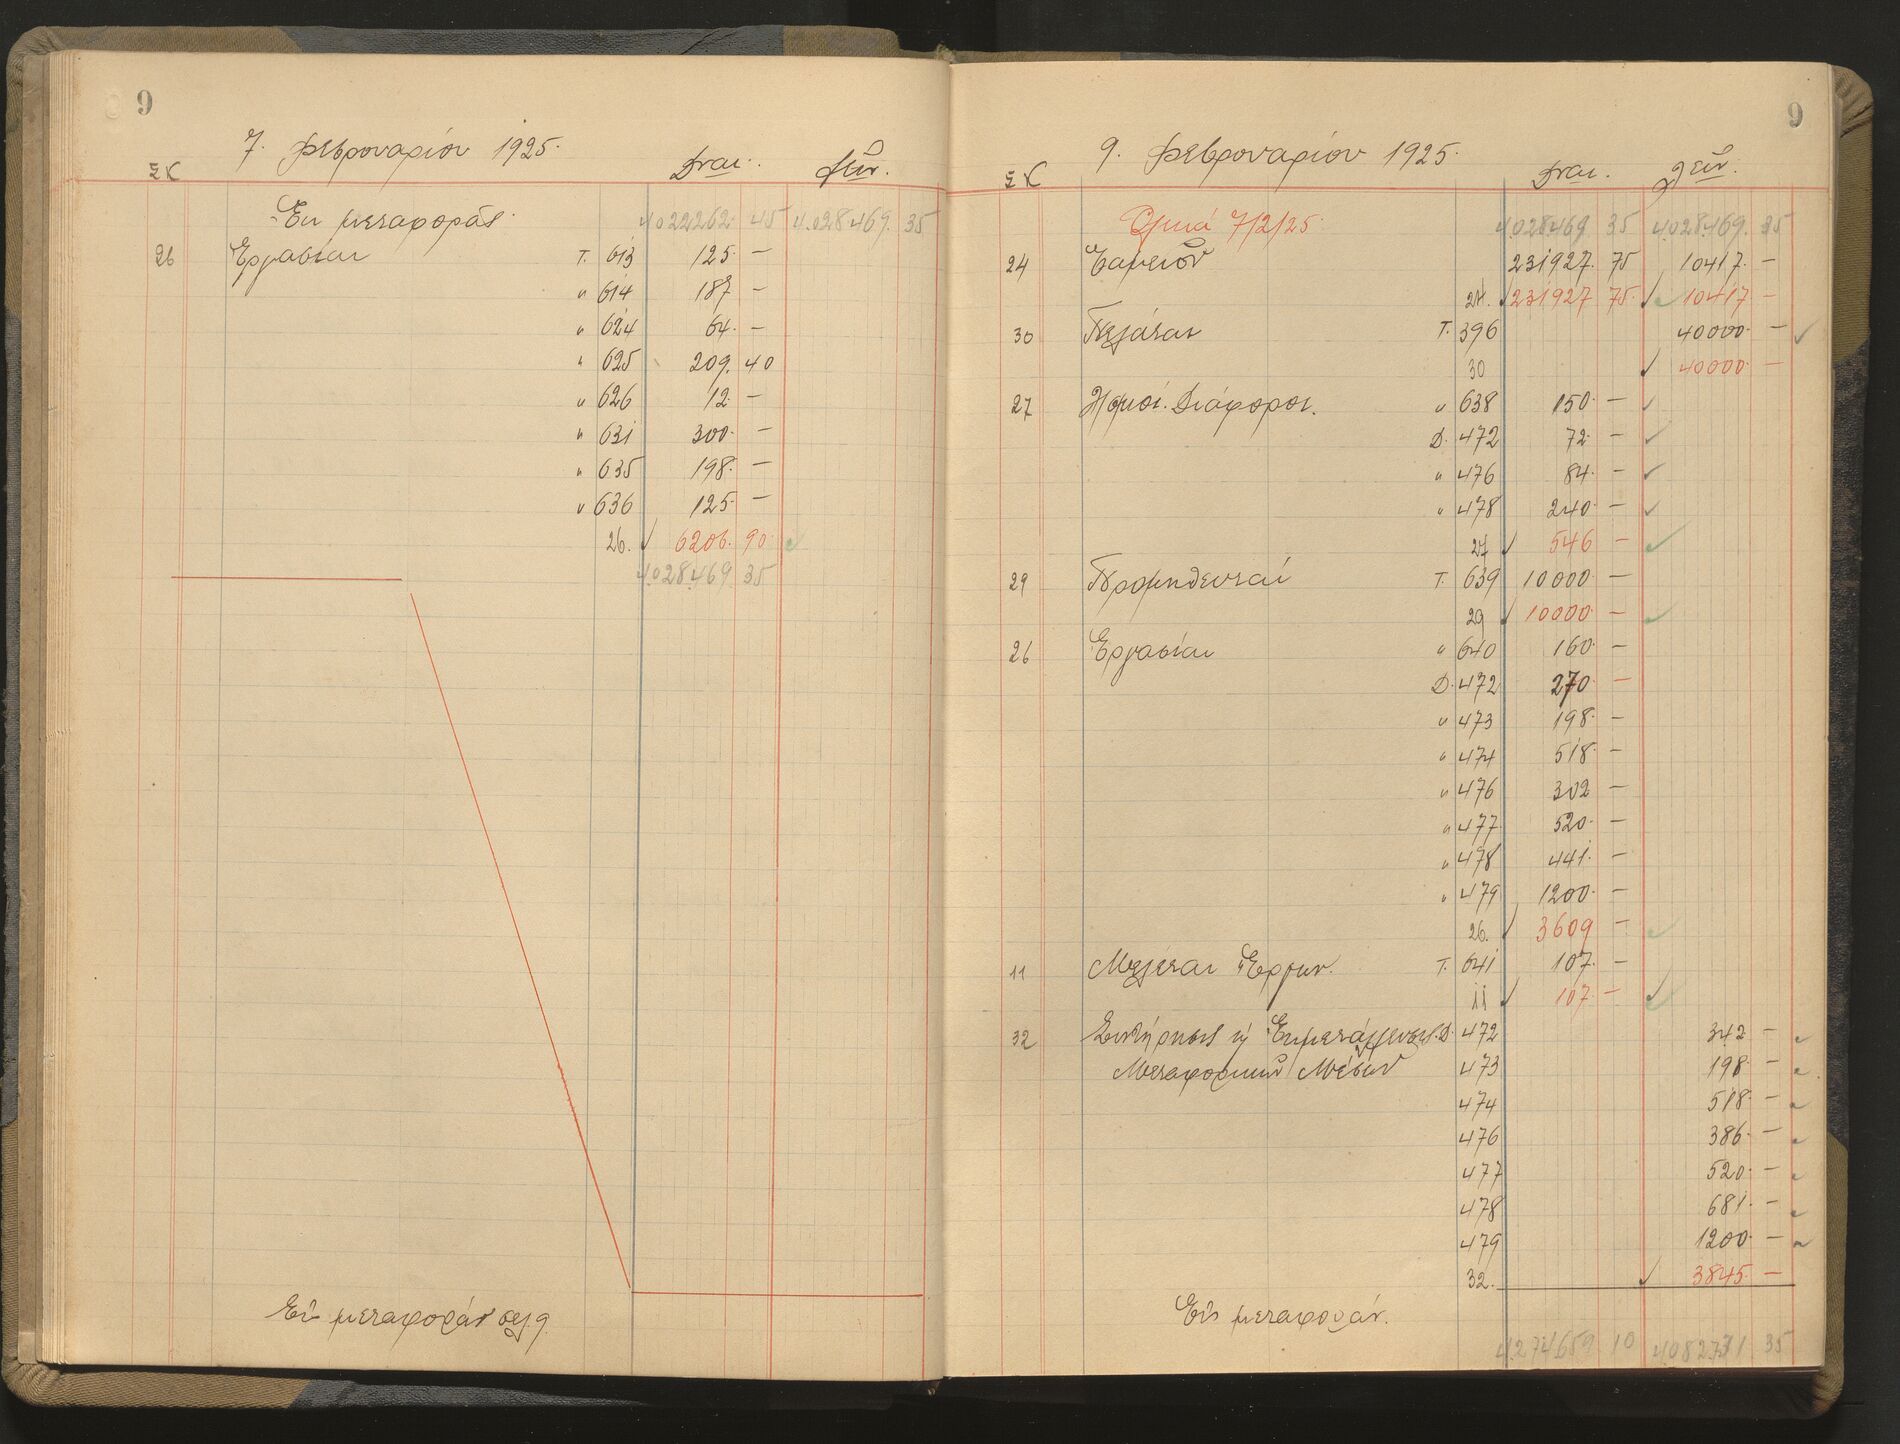 9
7. Φεβρουαρίου 1925.
Σ/Λ Δραι. Λῆψ.
Ἐκ μεταφορᾶς 4.022262. 45 4.028469. 35
26 Ἐργασίαι Τ. 613 125. —
" 614 187 —
" 624 64. —
" 625 209. 40
" 626 12. —
" 631 300. —
" 635 198. —
" 636 125. —
26. 6206. 90
4.028.469 35
Εἰς μεταφοράν σελ. 9
9
9. Φεβρουαρίου 1925.
Σ/Λ Δραι. Λῆψ.
Ὁλικά 7/2/25. 4.028469 35 4.028.469. 35
24 Ταμεῖον 231927. 75 10417. —
24. 231927 75. 10417 —
30 Πελάται Τ. 396 40000. —
30 40000. —
27 Ἡμ. Διάφοροι. " 638 150. —
Δ. 472 72. —
" 476 84. —
" 478 240. —
27 546 —
29 Προμηθευταί Τ. 639 10000. —
29 10000. —
26 Ἐργασίαι " 640 160. —
Δ. 472 270. —
" 473 198. —
" 474 518. —
" 476 302 —
" 477 520. —
" 478 441. —
" 479 1200. —
26. 3609 —
11 Μελέται Ἔργων. Τ. 641 107. —
11 107. —
32 Συντήρησις ἤ Ἐκμετάλλευσις Δ. 472 342 —
Μεταφορικῶν Μέσων 473 198. —
474 518. —
476 386. —
477 520. —
478 681. —
479 1200. —
32. 3845. —
Εἰς μεταφοράν.
4.274659 10 4.082731 35